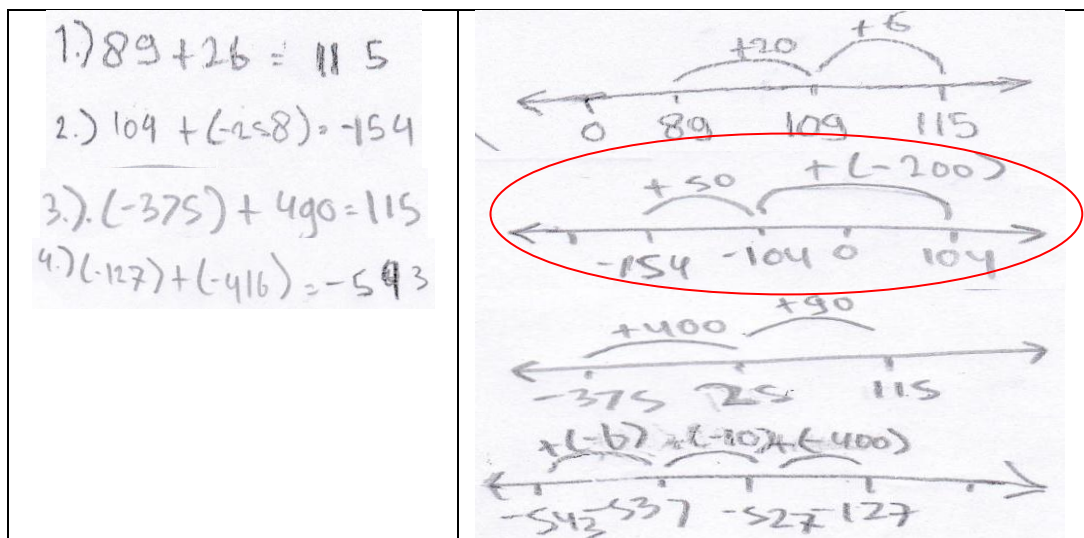 1.) 89 + 26 = 115
2.) 104 + (-258) = -154
3.). (-375) + 490 = 115
4.) (-127) + (-416) = -543
+20 +6
0 89 109 115
+50 +(-200)
-154 -104 0 104
+400 +90
-375 25 115
+(-6) +(-10) +(-400)
-543 -537 -527 -127